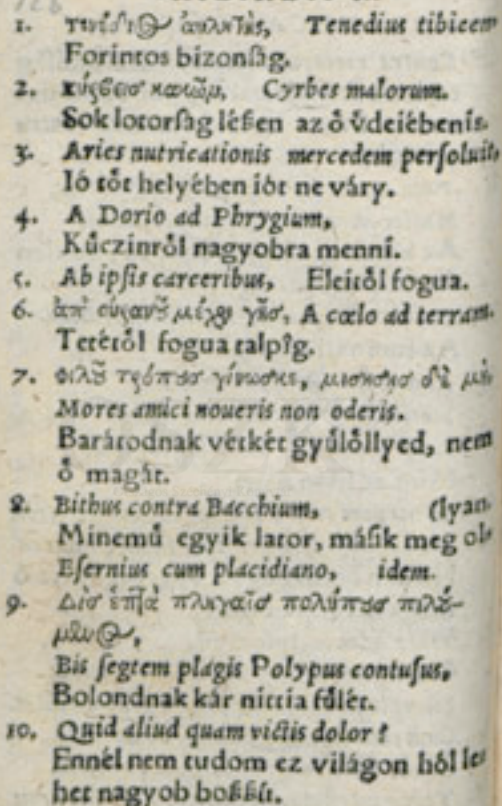 1. Τενέδι⊙ ἀυλητὴς, Tenedius tibicem
Forintos bizonſag.
2. κύρβεισ κακῶμ, Cyrbes malorum.
Sok lotorſag léßen az ő v̋deiébenis.
3. Aries nutricationis mercedem perſoluit,
Ió tőt helyében iót ne váry.
4. A Dorio ad Phrygium,
Kűczinről nagyobra menni.
5. Ab ipſis carceribus, Eleitől fogua.
6. ἀπ' οὐρανοῦ μέχρι γῆσ, A cœlo ad terram.
Tetétől fogua talpîg.
7. Φιλȣ τρόπȣσ γίνωσκε, μισήσησ δὲ μὴ
Mores amici noueris non oderis.
Barátodnak vétkét gyűlőllyed, nem
ő magát.
8. Bithus contra Bacchium, (lyan.
Minemű egyik lator, máſik meg ol-
Eſernius cum placidiano, idem.
9. Δὶσ ἑπτὰ πληγαῖσ πολύπȣσ πιλȣ-
μεν⊙,
Bis ſegtem plagis Polypus contuſus,
Bolondnak kár nittia fűlét.
10. Quid aliud quam victis dolor?
Ennél nem tudom ez világon hől le-
het nagyob boßßût.